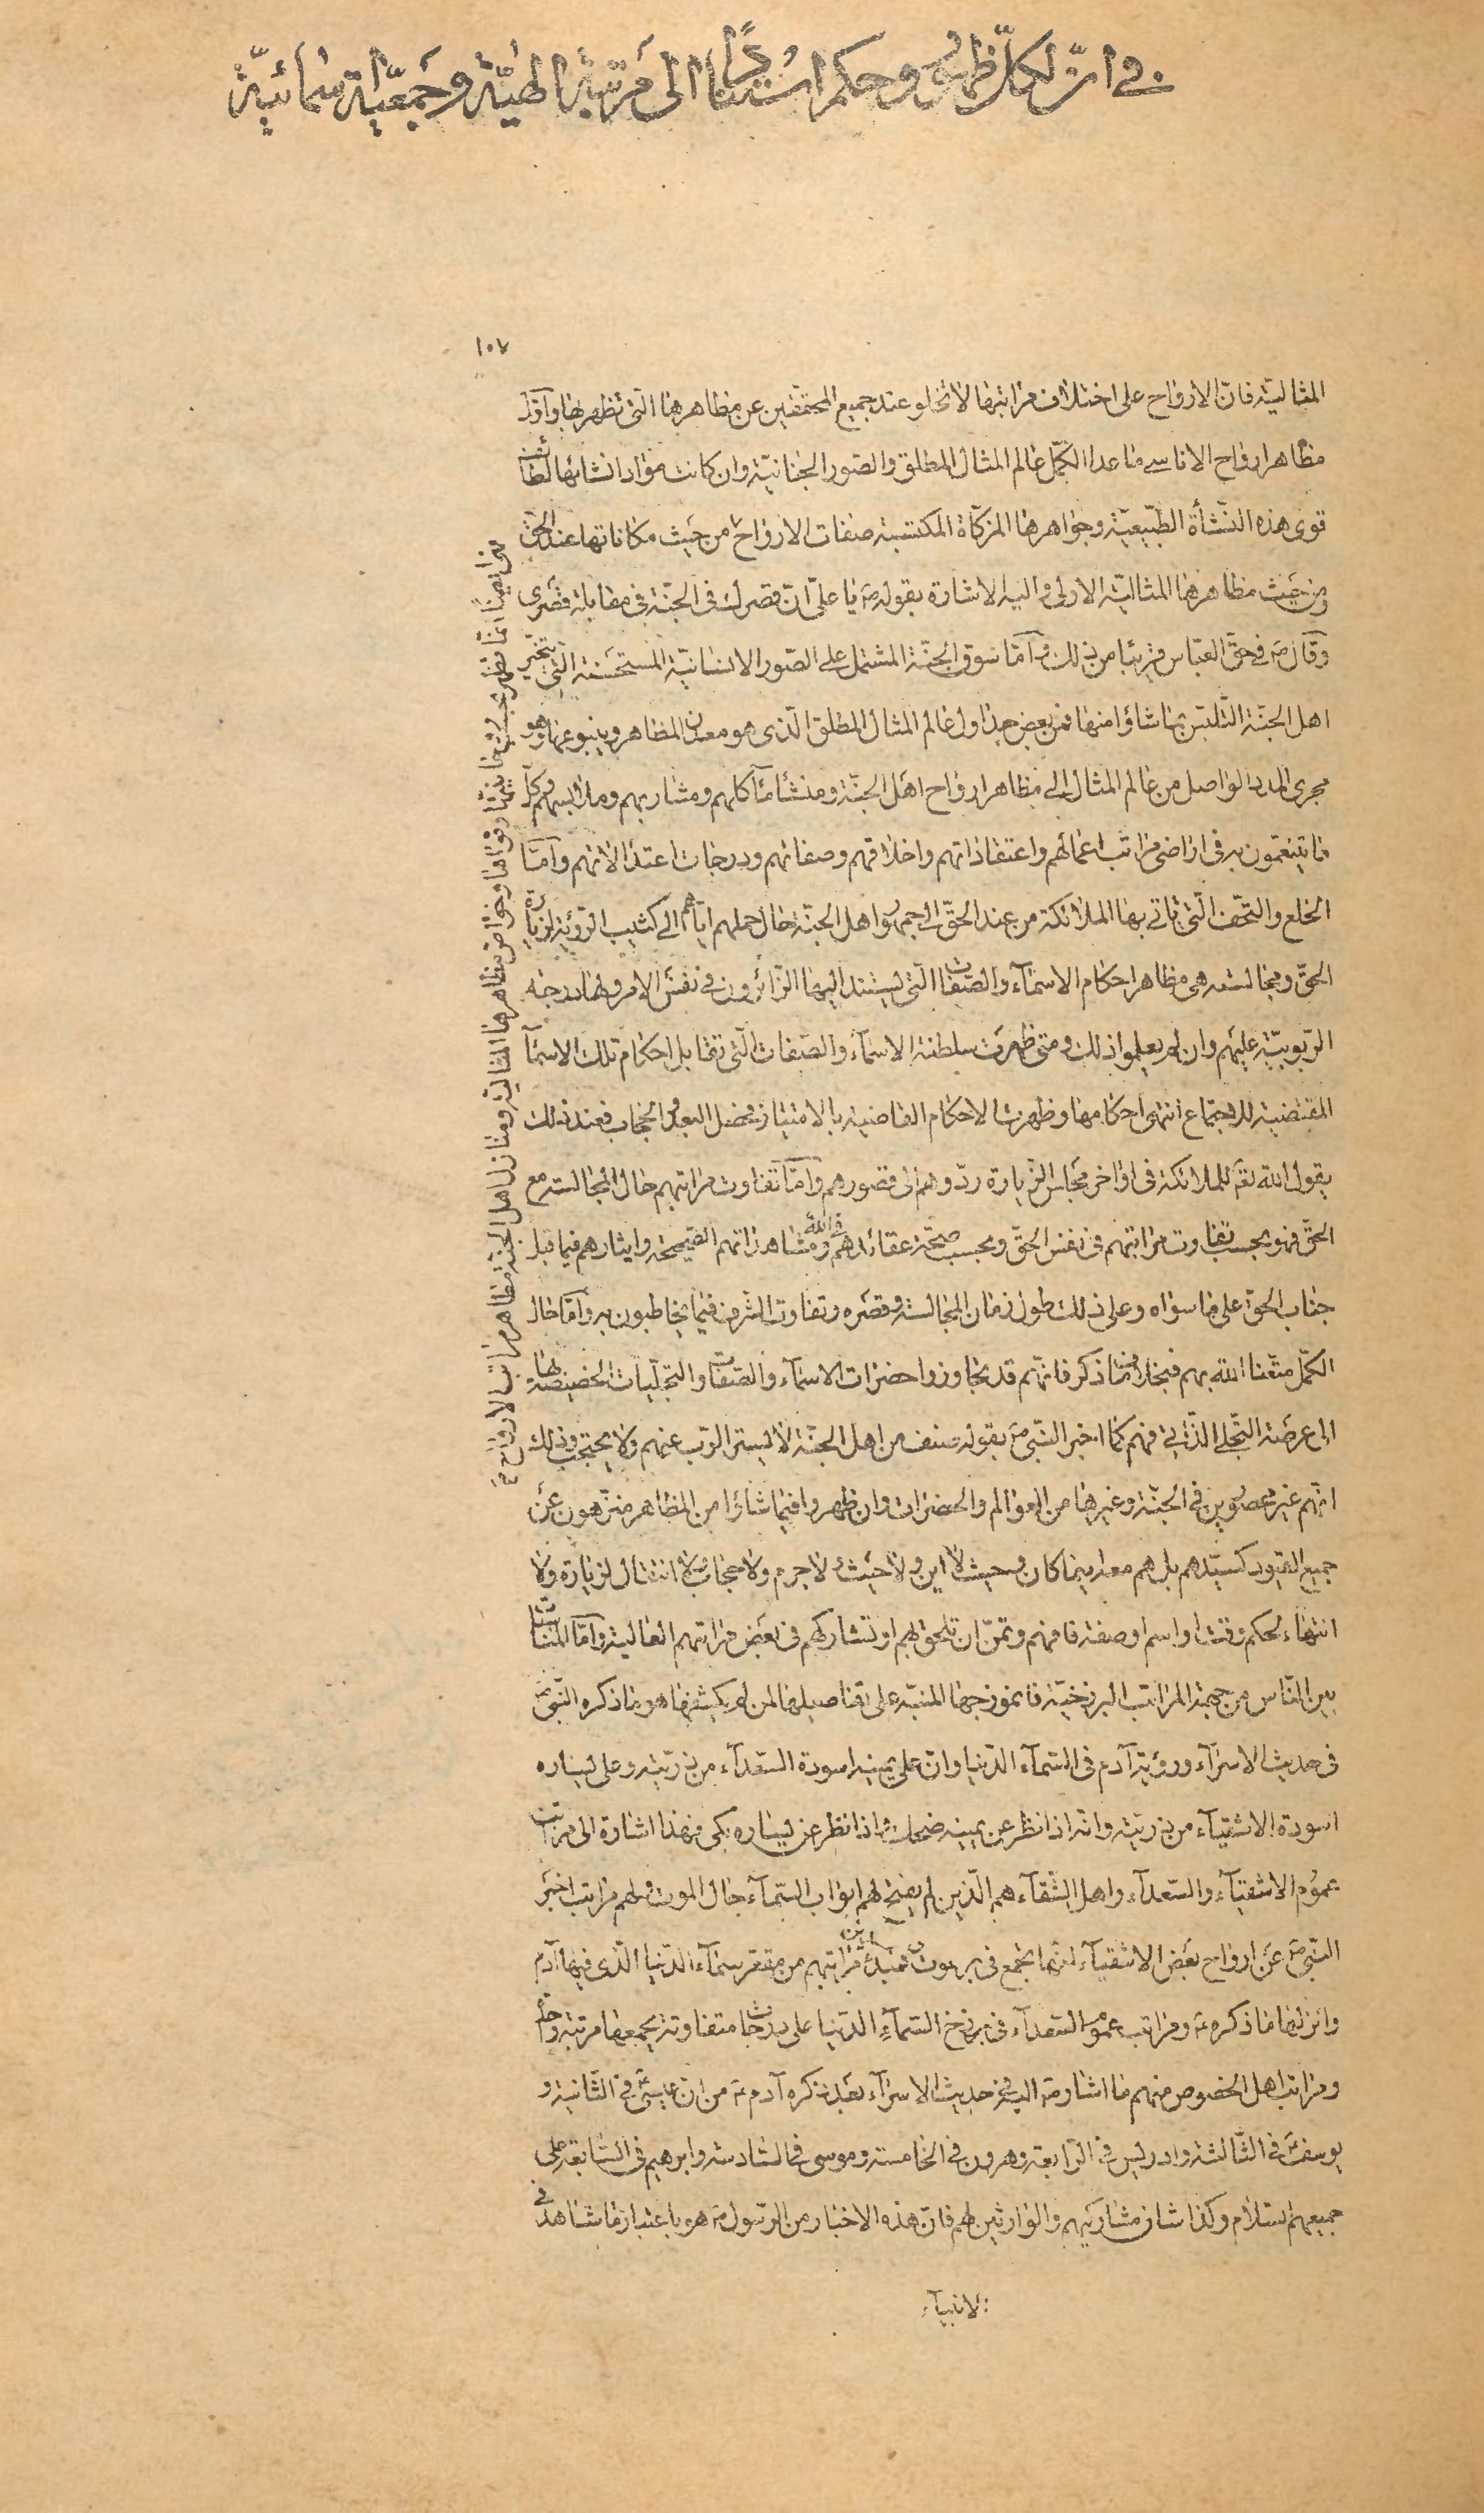 في ان لكل ظهور وحكم استنادا الى مرتبة الهية وجمعية اسمائية
١٠٧
المثالية فان الارواح على اختلاف مراتبها لا تخلو عند جميع المحققين عن مظاهرها التى تظهر بها واول
مظاهر ارواح الاناسى ما عدا الكمل عالم المثال المطلق والصور الجنانية وان كانت مواد انشائها لطائف
قوى هذه النشأة الطبيعية وجواهرها المزكاة المكتسبة صفات الارواح من حيث مكاناتها عند الحق
ومن حيث مظاهرها المثالية الاولى واليه الاشارة بقوله ص يا على ان قصرك فى الجنة فى مقابلة قصرى
وقال ص فى حق العباس قريبا من ذلك واما سوق الجنة المشتمل على الصور الانسانية المستحسنة التى يتخير
اهل الجنة التلبس بما شاؤا منها فمن بعض جداول عالم المثال المطلق الذى هو معدن المظاهر وينبوعها وهو
مجرى المدد الواصل من عالم المثال الى مظاهر ارواح اهل الجنة ومنشأ مآكلهم ومشاربهم وملابسهم وكل
ما يتنعمون به فى اراضى مراتب اعمالهم واعتقاداتهم واخلاقهم وصفاتهم ودرجات اعتدالاتهم واما
الخلع والتحف التى تاتى بها الملائكة من عند الحق الى جمهور اهل الجنة حال حملهم اياهم الى كثيب الرؤية لزيارة
الحق ومجالسته هى مظاهر احكام الاسمآء والصفات التى يستند اليها الزائرون فى نفس الامر ولها درجة
الربوبية عليهم وان لم يعلموا ذلك ومتى ظهرت سلطنة الاسمآء والصفات التى تقابل احكام تلك الاسمآ
المقتضية للاجتماع انتهى احكامها وظهرت الاحكام القاضية بالامتياز فحصل البعد والحجاب فعند ذلك
يقول الله تع للملائكة فى اواخر مجالس الزيارة ردوهم الى قصورهم واما تفاوت مراتبهم حال المجالسة مع
الحق فهو بحسب تفاوت مراتبهم فى نفس الحق وبحسب صحة عقائدهم فى الله ومشاهداتهم الصحيحة وايثارهم فيما قبل
جناب الحق على ما سواه وعلى ذلك طول زمان المجالسة وقصره وتفاوت الشرف فيما يخاطبون به واما حال
الكمل متعنا الله بهم فبخلاف ما ذكر فانهم قد تجاوزوا حضرات الاسمآء والصفات والتجليات الخصيصة بها
الى عرصة التجلى الذاتى فهم كما اخبر النبى ص بقوله صنف من اهل الجنة لا يستتر الرب عنهم ولا يحتجب وذلك
انهم غير محصورين فى الجنة وغيرها من العوالم والحضرات وان ظهروا فيما شاؤا من المظاهر منزهون عن
جميع القيود كسيدهم بل هم معه اينما كان وحيث لا اين ولا حيث لا جرم ولا حجاب ولا انتقال لزيارة ولا
انتهاء لحكم وقت او اسم او صفة فافهم وتمن ان تلحق بهم او تشاركهم فى بعض مراتبهم العالية واما المناسبة
بين الناس من جهة المراتب البرزخية فانموذجها المنبه على تفاصيلها لمن لم يكشفها هو ما ذكره النبى ص
فى حديث الاسرآء ورؤية آدم فى السمآء الدنيا وان على يمينه اسودة السعدآء من ذريته وعلى يساره
اسودة الاشقيآء من ذريته وانه اذا نظر عن يمينه ضحك واذا نظر عن يساره بكى فهذا اشارة الى مراتب
عموم الاشقيآء والسعدآء واهل الشقآء هم الذين لم يفتح لهم ابواب السمآء حال الموت ولهم مراتب اخبر
النبى ص عن ارواح بعض الاشقيآء انها تجمع فى برهوت فمبدأ مراتبهم من مقعر سمآء الدنيا الذى فيها آدم
وانزلها ما ذكره ص ومراتب عموم السعدآء فى برزخ السمآء الدنيا على درجات متفاوتة يجمعها مرتبة واحدة
ومراتب اهل الخصوص منهم ما اشار ص اليه فى حديث الاسرآء بعد ذكره آدم ع من ان عيسى ع فى الثانية و
يوسف ع فى الثالثة وادريس فى الرابعة وهرون فى الخامسة وموسى فى السادسة وابرهيم فى السابعة على
جميعهم السلام وكذا شان مشاركيهم والوارثين لهم فان هذه الاخبار من الرسول ص هو باعتبار ما شاهد فى
الانبيآء
وخواص مظاهرها المثالية ومنازل اهل الجنة مظاهر مراتب الارواح